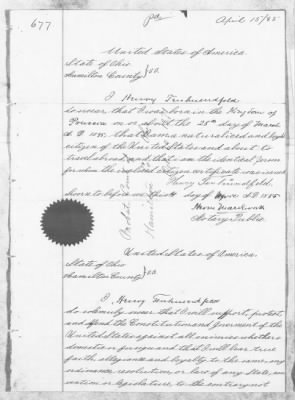 677
April 15/85
United States of America
State of Ohio
Hamilton County } SS.
I Henry
do swear that I was born in the Kingdom of
on or about the 25th day of March
A D that I am a naturalized and
citizen of the United States and about to
travel abroad and that I am the identical person
for whom the enclosed citizen certificate was issued
Henry
Sworn to before me this day of A D 1885
Notary Public
United States of America.
State of Ohio
Hamilton County } SS.
I Henry
do solemnly swear that I will support, protect,
and defend the Constitution and Government of the
United States against all enemies whether
domestic or foreign and that I will bear true
faith, allegiance and loyalty to the same, any
ordinance, resolution or law of any State,
or legislature to the contrary not